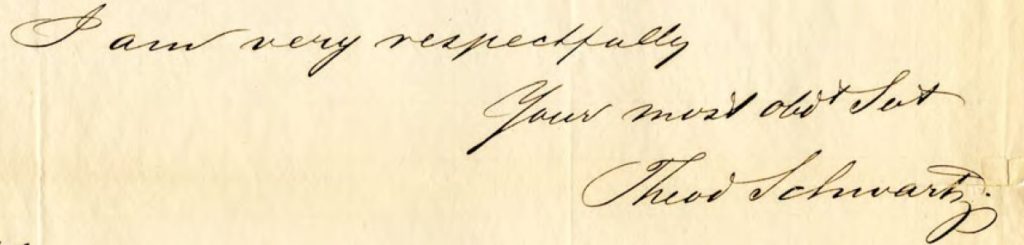 I am very respectfully
Your most obdt Svt
Theod Schwartz.